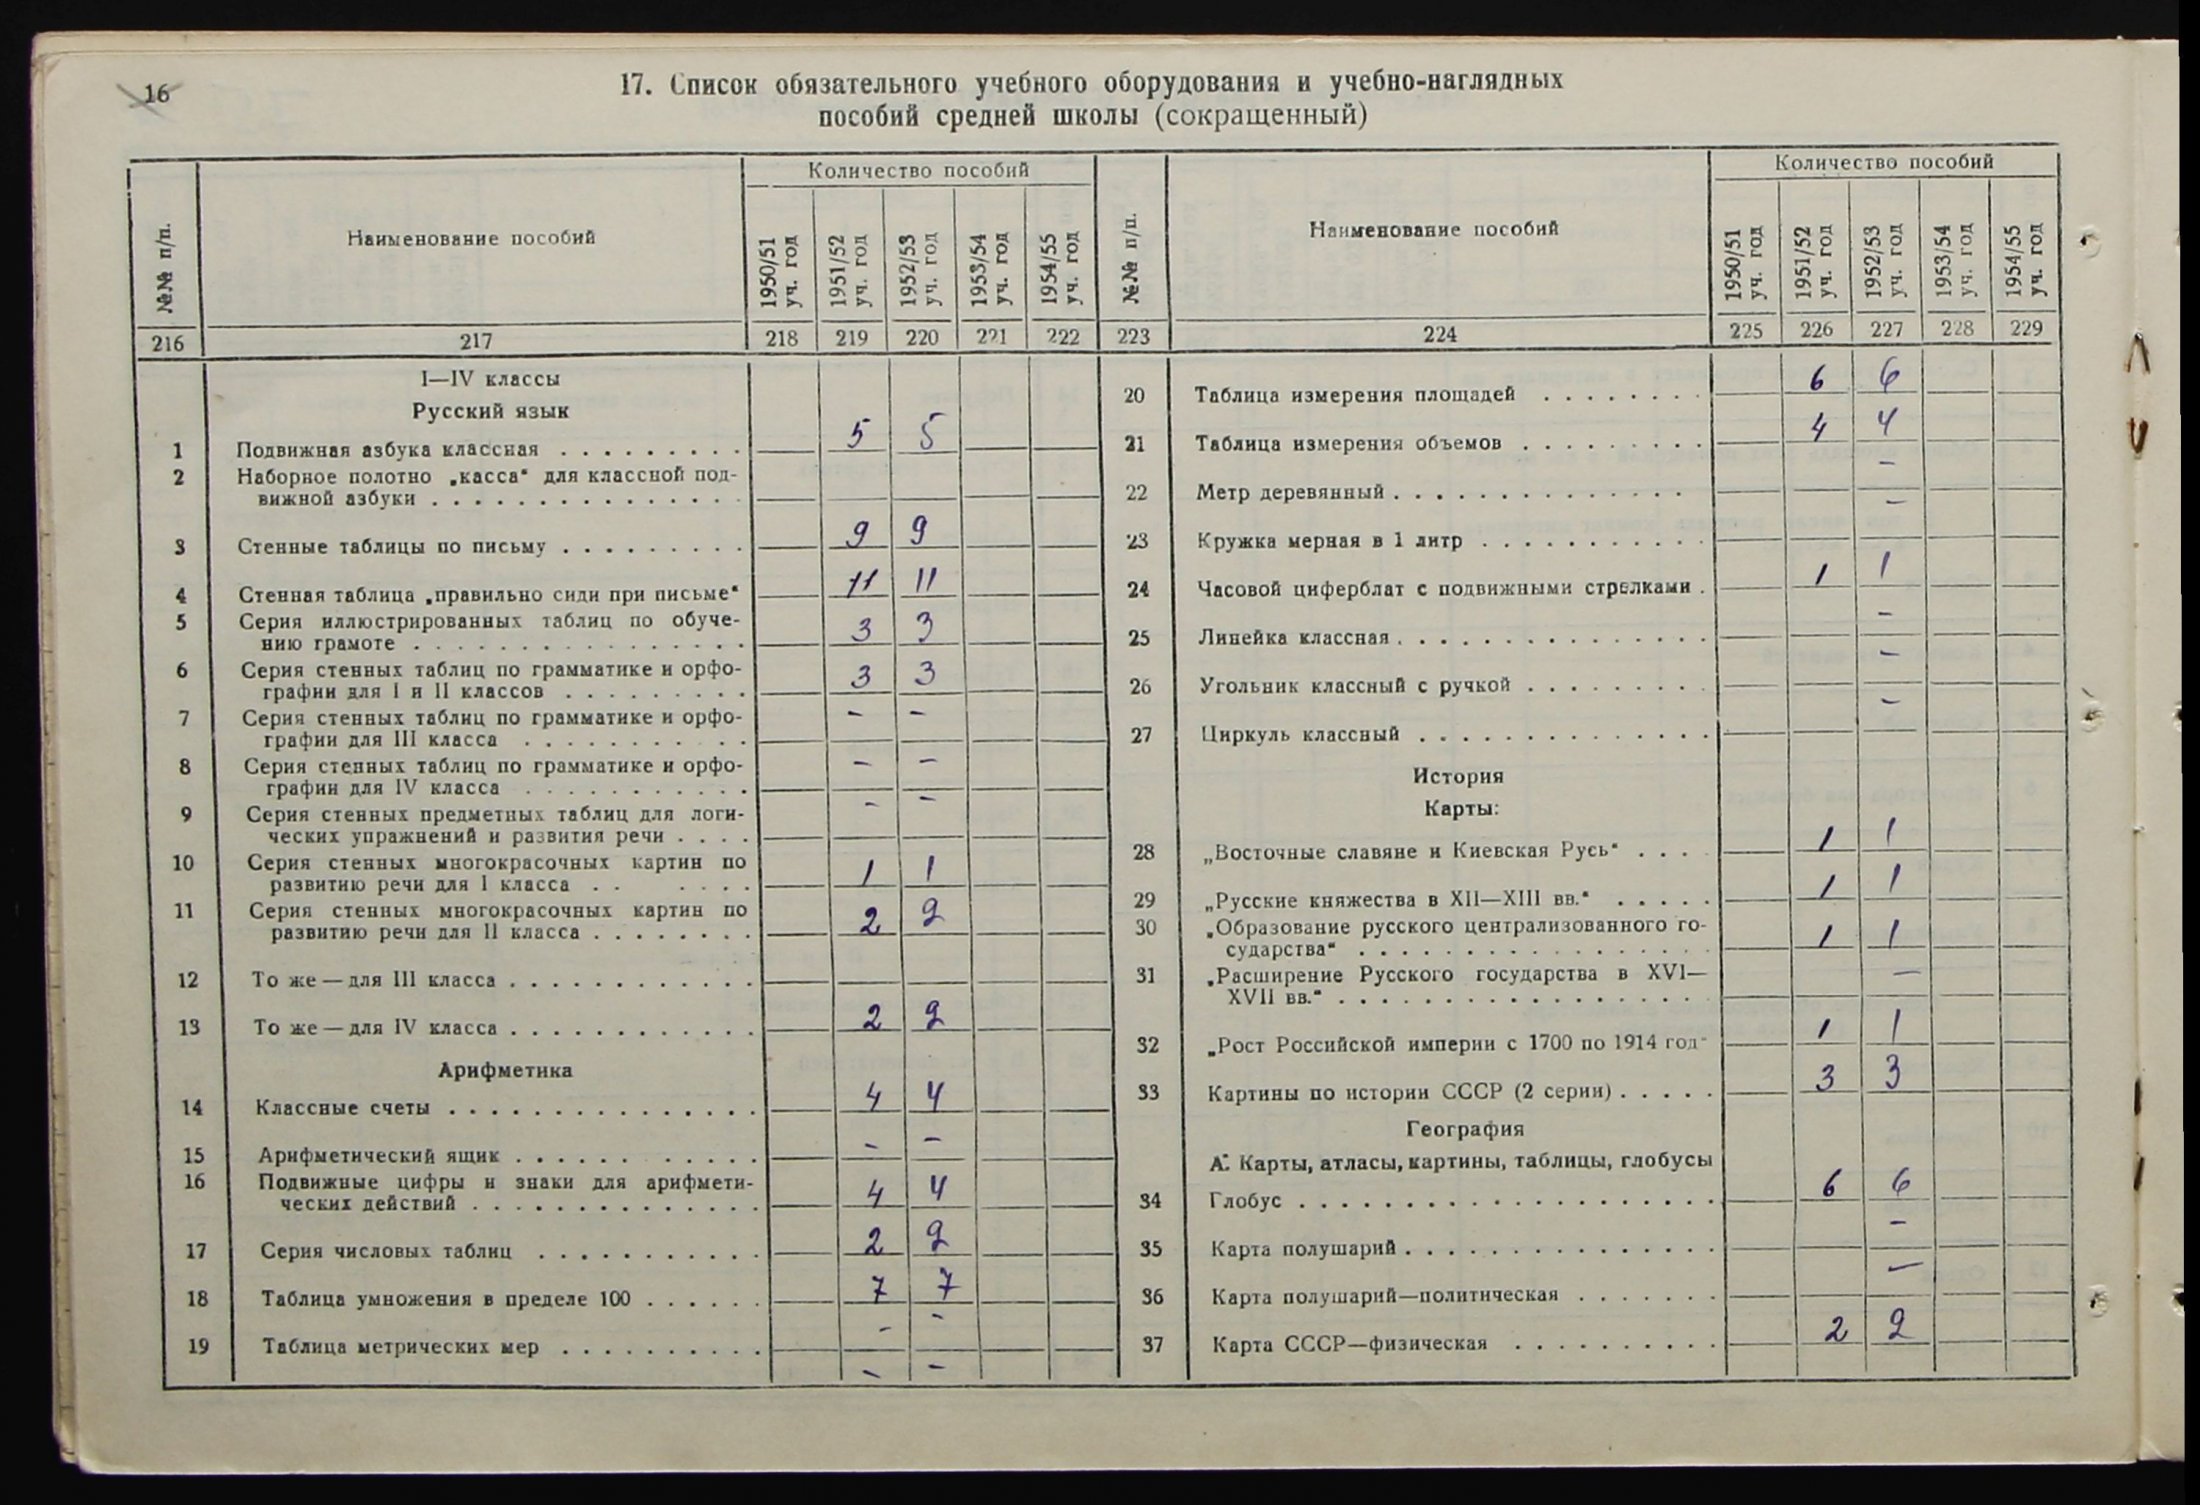 16
17. Список обязательного учебного оборудования и учебно-наглядных
пособий средней школы (сокращенный)
№№ п/п.
Наименование пособий
Количество пособий
1950/51 уч. год
1951/52 уч. год
1952/53 уч. год
1953/54 уч. год
1954/55 уч. год
216 217 218 219 220 221 222
I—IV классы
Русский язык
1 Подвижная азбука классная . . . . . . . . . 5 5
2 Наборное полотно „касса“ для классной под-
вижной азбуки . . . . . . . . . . . . . . .
3 Стенные таблицы по письму . . . . . . . . . 9 9
4 Стенная таблица „правильно сиди при письме“ 11 11
5 Серия иллюстрированных таблиц по обуче-
нию грамоте . . . . . . . . . . . . . . . . 3 3
6 Серия стенных таблиц по грамматике и орфо-
графии для I и II классов . . . . . . . . . 3 3
7 Серия стенных таблиц по грамматике и орфо-
графии для III класса . . . . . . . . . . . – –
8 Серия стенных таблиц по грамматике и орфо-
графии для IV класса . . . . . . . . . . . – –
9 Серия стенных предметных таблиц для логи-
ческих упражнений и развития речи . . . . – –
10 Серия стенных многокрасочных картин по
развитию речи для I класса . . . . . . 1 1
11 Серия стенных многокрасочных картин по
развитию речи для II класса . . . . . . . . 2 2
12 То же — для III класса . . . . . . . . . . . .
13 То же — для IV класса . . . . . . . . . . . . 2 2
Арифметика
14 Классные счеты . . . . . . . . . . . . . . . 4 4
15 Арифметический ящик . . . . . . . . . . . – –
16 Подвижные цифры и знаки для арифмети-
ческих действий . . . . . . . . . . . . . . 4 4
17 Серия числовых таблиц . . . . . . . . . . . 2 2
18 Таблица умножения в пределе 100 . . . . . . 7 7
19 Таблица метрических мер . . . . . . . . . . – –
– –
№№ п/п.
Наименование пособий
Количество пособий
1950/51 уч. год
1951/52 уч. год
1952/53 уч. год
1953/54 уч. год
1954/55 уч. год
223 224 225 226 227 228 229
20 Таблица измерения площадей . . . . . . . . 6 6
21 Таблица измерения объемов . . . . . . . . . 4 4
22 Метр деревянный . . . . . . . . . . . . . . –
23 Кружка мерная в 1 литр . . . . . . . . . . . –
24 Часовой циферблат с подвижными стрелками . 1 1
25 Линейка классная . . . . . . . . . . . . . . . –
26 Угольник классный с ручкой . . . . . . . . . –
27 Циркуль классный . . . . . . . . . . . . . . –
История
Карты:
28 „Восточные славяне и Киевская Русь“ . . . . 1 1
29 „Русские княжества в XII—XIII вв.“ . . . . . 1 1
30 „Образование русского централизованного го-
сударства“ . . . . . . . . . . . . . . . . . 1 1
31 „Расширение Русского государства в XVI—
XVII вв.“ . . . . . . . . . . . . . . . . . . –
32 „Рост Российской империи с 1700 по 1914 год“ 1 1
33 Картины по истории СССР (2 серии) . . . . . 3 3
География
А. Карты, атласы, картины, таблицы, глобусы
34 Глобус . . . . . . . . . . . . . . . . . . . . 6 6
35 Карта полушарий . . . . . . . . . . . . . . . –
36 Карта полушарий—политическая . . . . . . . –
37 Карта СССР—физическая . . . . . . . . . . 2 2